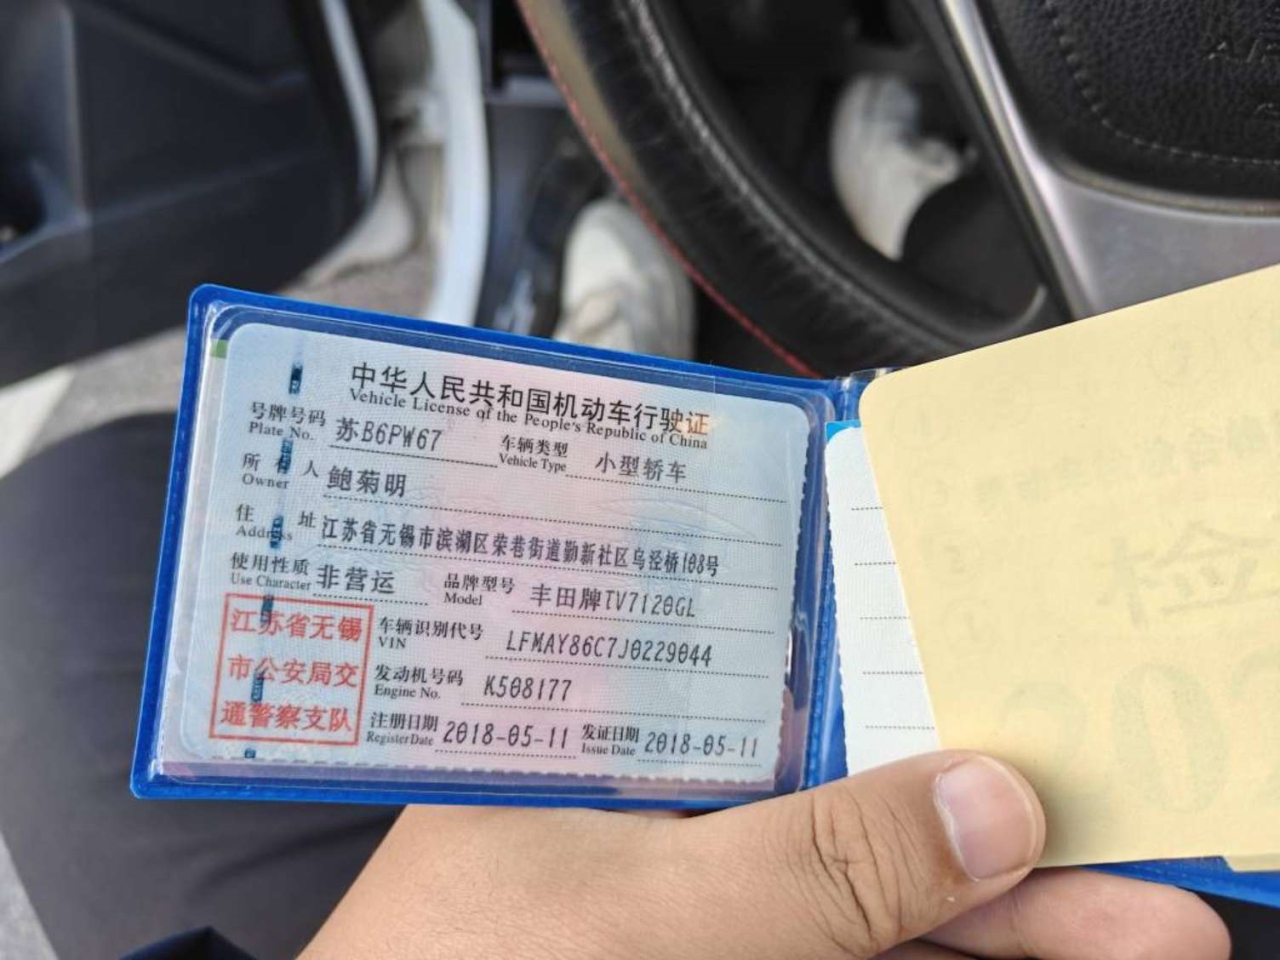 中华人民共和国机动车行驶证
Vehicle License of the People's Republic of China
号牌号码 苏B6PW67 车辆类型 小型轿车
Plate No. Vehicle Type
所有人 鲍菊明
Owner
住址 江苏省无锡市滨湖区荣巷街道勤新社区乌泾桥108号
Address
使用性质 非营运 品牌型号 丰田牌TV7120GL
Use Character Model
江苏省无锡
市公安局交
通警察支队
车辆识别代号 LFMAY86C7J0229044
VIN
发动机号码 K508177
Engine No.
注册日期 2018-05-11 发证日期 2018-05-11
Register Date Issue Date